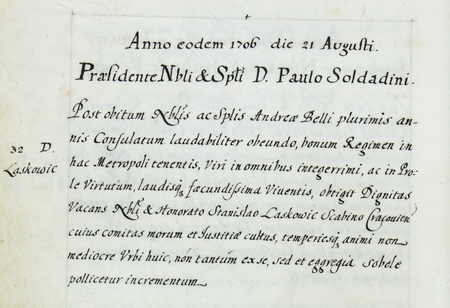 Anno eodem 1706 die 21 Augusti.
Præsidente Nbli & Spti D. Paulo Soldadini.
Post obitum Nblis ac Splis Andreæ Belli plurimis an-
nis Consulatum laudabiliter obeundo, bonum Regimen in
hac Metropoli tenentis, Viri in omnibus integerrimi, ac in Pro-
le Virtutum, laudisq facundissima Viventis, obtigit Dignitas
Vacans Nbli & Honorato Stanislao Laskowic Scabino Cracovien
cuius comitas morum et Iustitiæ cultus, temperiesq animi non
mediocre Urbi huic, non tantum ex se, sed et eggregia sobole
pollicetur incrementum
32 D.
Laskowic